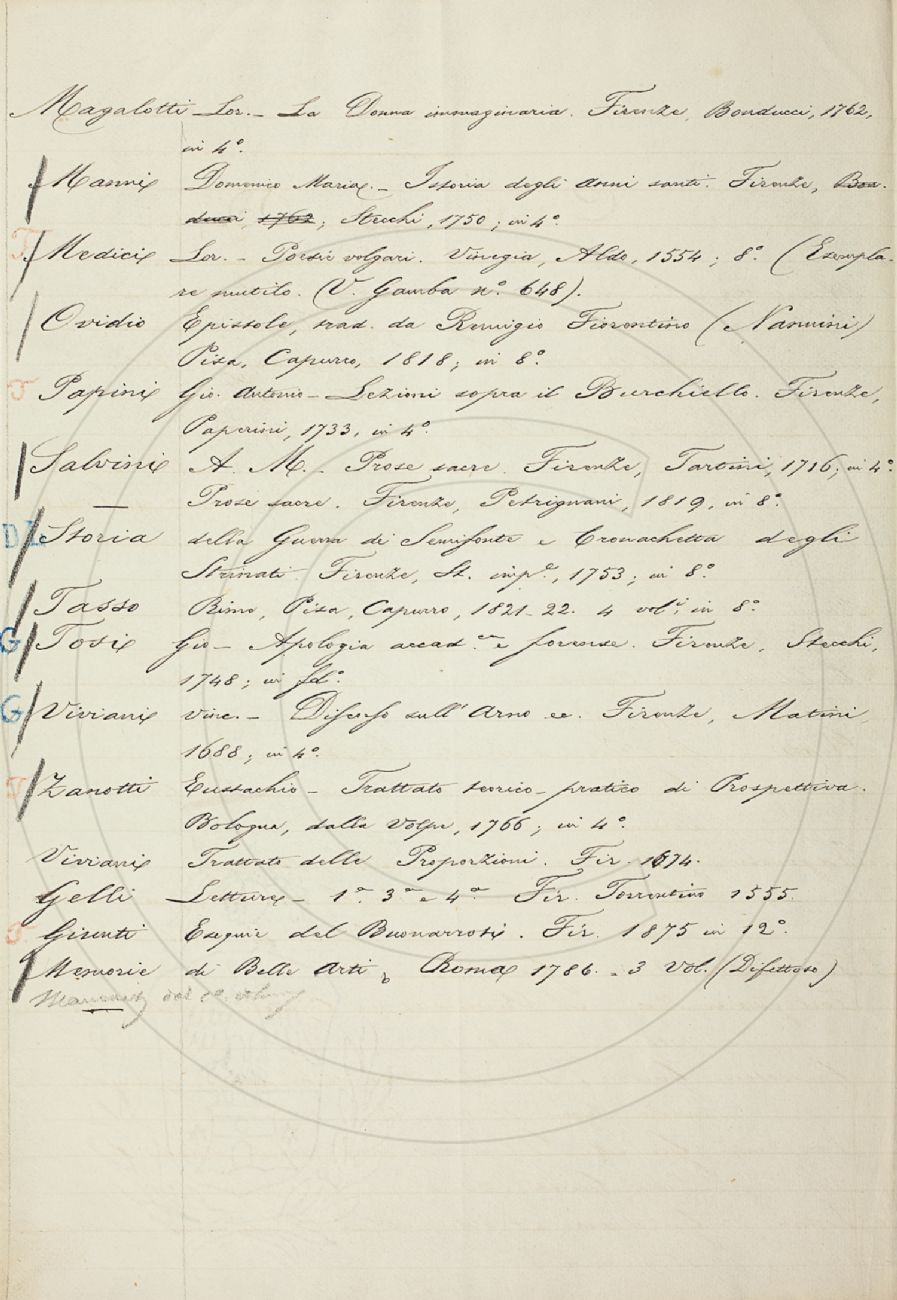 Magalotti Lor. – La Donna immaginaria. Firenze, Bonducci, 1762,
in 4°.
Manni Domenico Maria. – Istoria degli anni santi. Firenze, Bon-
ducci, 1762; Stecchi, 1750; in 4°.
T Medici Lor. – Poesie volgari. Vinegia, Aldo, 1554; 8°. (Esempla-
re mutilo. (V. Gamba n°. 648).
Ovidio Epistole, trad. da Remigio Fiorentino (Nannini)
Pisa, Capurro, 1818; in 8°.
T Papini Gio. Antonio – Lezioni sopra il Burchiello. Firenze,
Paperini, 1733, in 4°.
Salvini A. M. – Prose sacre. Firenze, Tartini, 1716; in 4°.
— Prose sacre. Firenze, Petrignani, 1819, in 8°.
DL Storia della Guerra di Semifonte e Cronachetta degli
Strinati. Firenze, St. imp.e, 1753; in 8°.
Tasso Rime, Pisa, Capurro, 1821–22. 4 vol.i in 8°.
G Tosi Gio – Apologia accad.ca e forense. Firenze, Stecchi,
1748; in fol°.
G Viviani Vinc. – Discorso sull' Arno ec. Firenze, Matini,
1688; in 4°.
V Zanotti Eustachio – Trattato teorico-pratico di Prospettiva.
Bologna, dalla Volpe, 1766; in 4°.
Viviani Trattato delle Proporzioni. Fir. 1674.
Gelli Letture – 1a. 3a e 4a Fir. Torrentino 1555.
Giunti Esequie del Buonarroti. Fir. 1875 in 12°.
Memorie di Belle Arti, Roma 1786. – 3 Vol. (Difettoso)